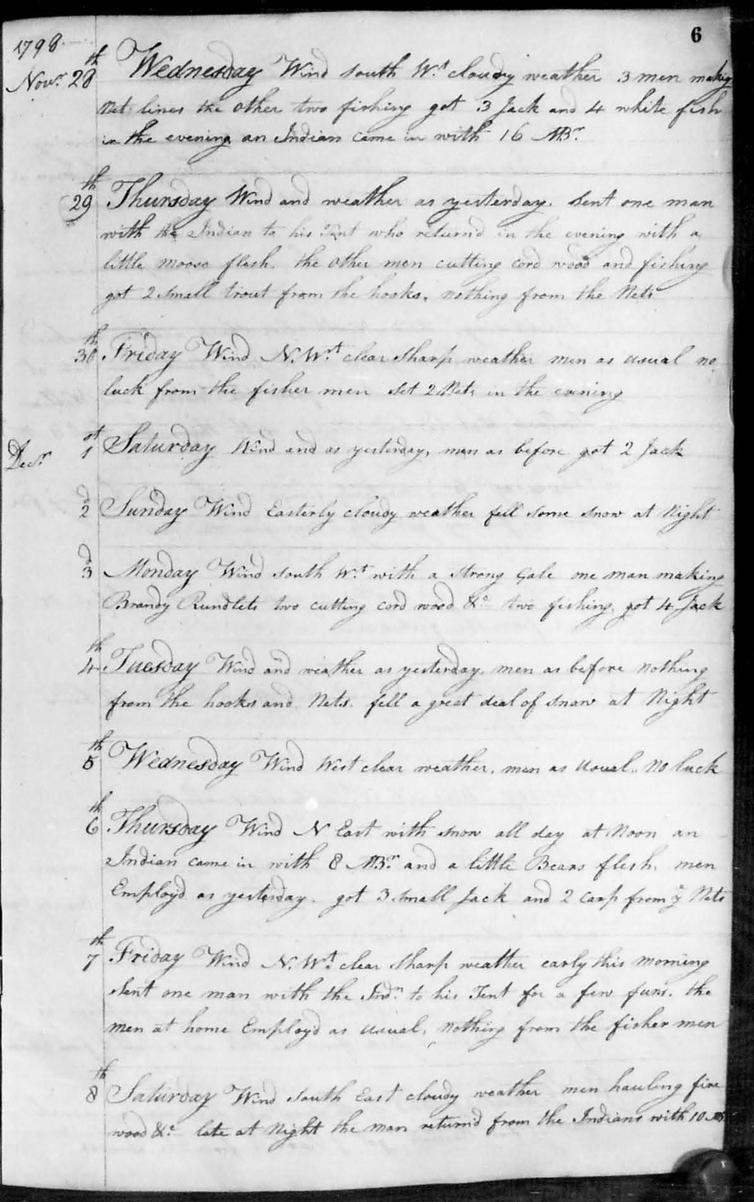 6
1798
Novr. 28th Wednesday Wind South Wt. cloudy weather 3 men making
Net lines the other two fishing got 3 Jack and 4 white fish
in the evening an Indian came in with 16 MBr.
29th Thursday Wind and weather as yesterday. Sent one man
with the Indian to his Tent who returnd in the evening with a
little moose flesh. the other men cutting cord wood and fishing
got 2 small trout from the hooks, nothing from the Nets
30th Friday Wind N. Wt. clear sharp weather men as usual no
luck from the fisher men set 2 Nets in the evening
Decr. 1st Saturday Wind and as yesterday, men as before got 2 Jack
2d Sunday Wind Easterly cloudy weather fell some snow at Night
3d Monday Wind South Wt. with a strong Gale one man making
Brandy Rundlets two cutting cord wood &c two fishing, got 4 Jack
4th Tuesday Wind and weather as yesterday. men as before nothing
from the hooks and Nets. fell a great deal of snow at Night
5th Wednesday Wind West clear weather. men as usual. No luck
6th Thursday Wind N East with snow all day at Noon an
Indian came in with 8 MBr. and a little Bears flesh. men
Employd as yesterday. got 3 small Jack and 2 Carp from ye Nets
7th Friday Wind N. Wt. clear sharp weather early this morning
sent one man with the Indn. to his Tent for a few furs. the
men at home Employd as usual, nothing from the fisher men
8th Saturday Wind South East cloudy weather men hauling fire
wood &c late at Night the man returnd from the Indians with 10